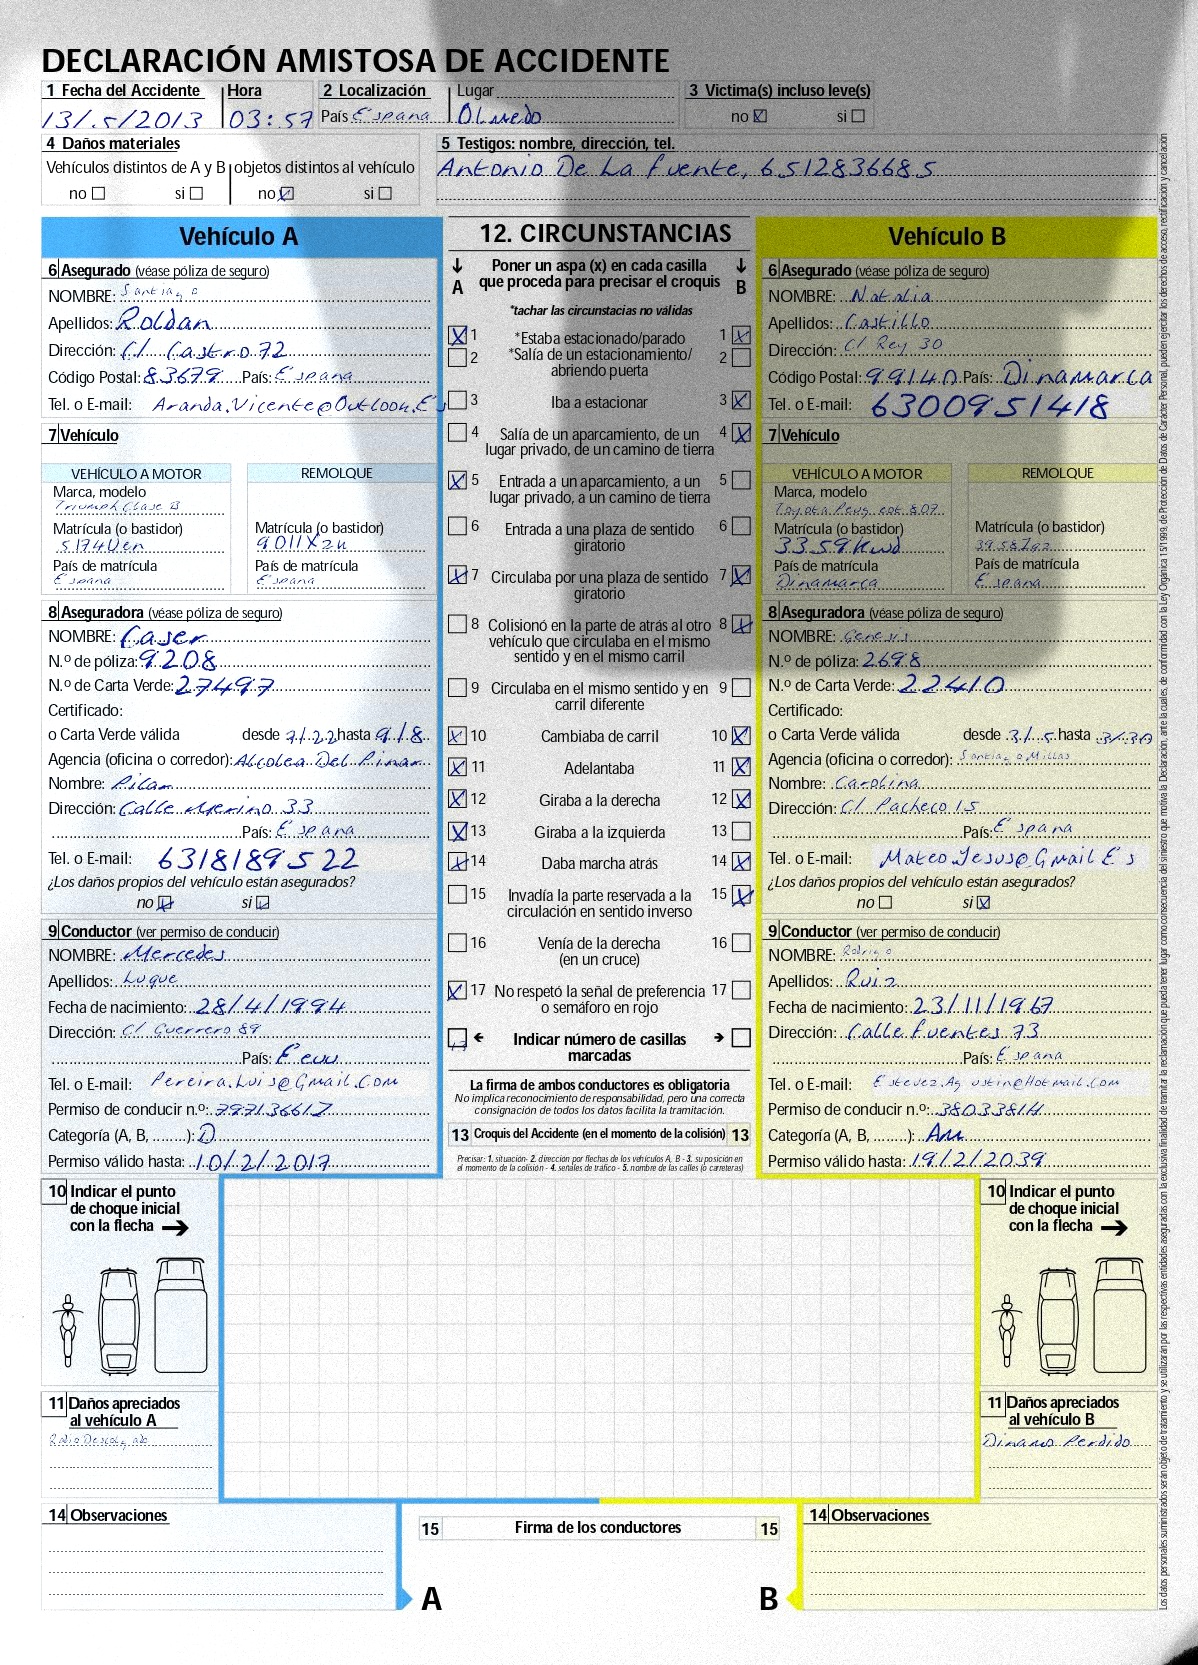 DECLARACIÓN AMISTOSA DE ACCIDENTE
1 Fecha del Accidente Hora 2 Localización Lugar 3 Victima(s) incluso leve(s)
13/5/2013 03:57 País Espana Olmedo no si
4 Daños materiales 5 Testigos: nombre, dirección, tel.
Vehículos distintos de A y B objetos distintos al vehículo Antonio De La Fuente, 651283668 5
no si no si
Vehículo A 12. CIRCUNSTANCIAS Vehículo B
6 Asegurado (véase póliza de seguro)
NOMBRE: Santiago
Apellidos: Roldan
Dirección: C/ Castro 72
Código Postal: 83679 País: Espana
Tel. o E-mail: Aranda.Vicente@Outlook.Es
7 Vehículo
VEHÍCULO A MOTOR REMOLQUE
Marca, modelo
Triumph Clase B
Matrícula (o bastidor) Matrícula (o bastidor)
5174Uen 9011Xzu
País de matrícula País de matrícula
Espana Espana
8 Aseguradora (véase póliza de seguro)
NOMBRE: Caser
N.º de póliza: 9208
N.º de Carta Verde: 27497
Certificado:
o Carta Verde válida desde 7/22 hasta 9/8
Agencia (oficina o corredor): Alcolea Del Pinar
Nombre: Pilar
Dirección: Calle Merino 33
País: Espana
Tel. o E-mail: 6318189522
¿Los daños propios del vehículo están asegurados?
no si
9 Conductor (ver permiso de conducir)
NOMBRE: Mercedes
Apellidos: Luque
Fecha de nacimiento: 28/4/1994
Dirección: C/ Guerrero 89
País: Eeuu
Tel. o E-mail: Pereira.Luis@Gmail.Com
Permiso de conducir n.º: 79713661Z
Categoría (A, B, ........): D
Permiso válido hasta: 10/2/2017
↓ A Poner un aspa (x) en cada casilla ↓ B
que proceda para precisar el croquis
*tachar las circunstacias no válidas
1 *Estaba estacionado/parado 1
2 *Salía de un estacionamiento/ 2
abriendo puerta
3 Iba a estacionar 3
4 Salía de un aparcamiento, de un 4
lugar privado, de un camino de tierra
5 Entrada a un aparcamiento, a un 5
lugar privado, a un camino de tierra
6 Entrada a una plaza de sentido 6
giratorio
7 Circulaba por una plaza de sentido 7
giratorio
8 Colisionó en la parte de atrás al otro 8
vehículo que circulaba en el mismo
sentido y en el mismo carril
9 Circulaba en el mismo sentido y en 9
carril diferente
10 Cambiaba de carril 10
11 Adelantaba 11
12 Giraba a la derecha 12
13 Giraba a la izquierda 13
14 Daba marcha atrás 14
15 Invadía la parte reservada a la 15
circulación en sentido inverso
16 Venía de la derecha 16
(en un cruce)
17 No respetó la señal de preferencia 17
o semáforo en rojo
Indicar número de casillas
marcadas
La firma de ambos conductores es obligatoria
No implica reconocimiento de responsabilidad, pero una correcta
consignación de todos los datos facilita la tramitación.
13 Croquis del Accidente (en el momento de la colisión) 13
Precisar: 1. situación- 2. dirección por flechas de los vehículos A, B - 3. su posición en
el momento de la colisión - 4. señales de tráfico - 5. nombre de las calles (o carreteras)
6 Asegurado (véase póliza de seguro)
NOMBRE: Natalia
Apellidos: Castillo
Dirección: C/ Rey 30
Código Postal: 99140 País: Dinamarca
Tel. o E-mail: 6300951418
7 Vehículo
VEHÍCULO A MOTOR REMOLQUE
Marca, modelo
Toyota Peugeot 807
Matrícula (o bastidor) Matrícula (o bastidor)
3359Kwd
País de matrícula País de matrícula
Dinamarca Espana
8 Aseguradora (véase póliza de seguro)
NOMBRE: Genesis
N.º de póliza: 2698
N.º de Carta Verde: 22410
Certificado:
o Carta Verde válida desde 3/5 hasta 3/30
Agencia (oficina o corredor): Santiago Millas
Nombre: Carolina
Dirección: C/ Pacheco 15
País: Espana
Tel. o E-mail: MateoJesus@Gmail Es
¿Los daños propios del vehículo están asegurados?
no si
9 Conductor (ver permiso de conducir)
NOMBRE: Rodrigo
Apellidos: Ruiz
Fecha de nacimiento: 23/11/1967
Dirección: Calle Fuentes 73
País: Espana
Tel. o E-mail: Estevez.Agustin@Hotmail.Com
Permiso de conducir n.º: 3803381H
Categoría (A, B, ........): Am
Permiso válido hasta: 19/2/2039
10 Indicar el punto
de choque inicial
con la flecha
11 Daños apreciados
al vehículo A
Radio Descolgado
10 Indicar el punto
de choque inicial
con la flecha
11 Daños apreciados
al vehículo B
Dinamo Perdido
14 Observaciones 15 Firma de los conductores 15 14 Observaciones
A B
Los datos personales suministrados serán objeto de tratamiento y se utilizarán por las respectivas entidades aseguradas con la exclusiva finalidad de tramitar la reclamación que pueda tener lugar como consecuencia del siniestro que motiva la Declaración, ante la cuales, de conformidad con la Ley Orgánica 15/1999, de Protección de Datos de Carácter Personal, pueden ejercitar los derechos de acceso, rectificación y cancelación